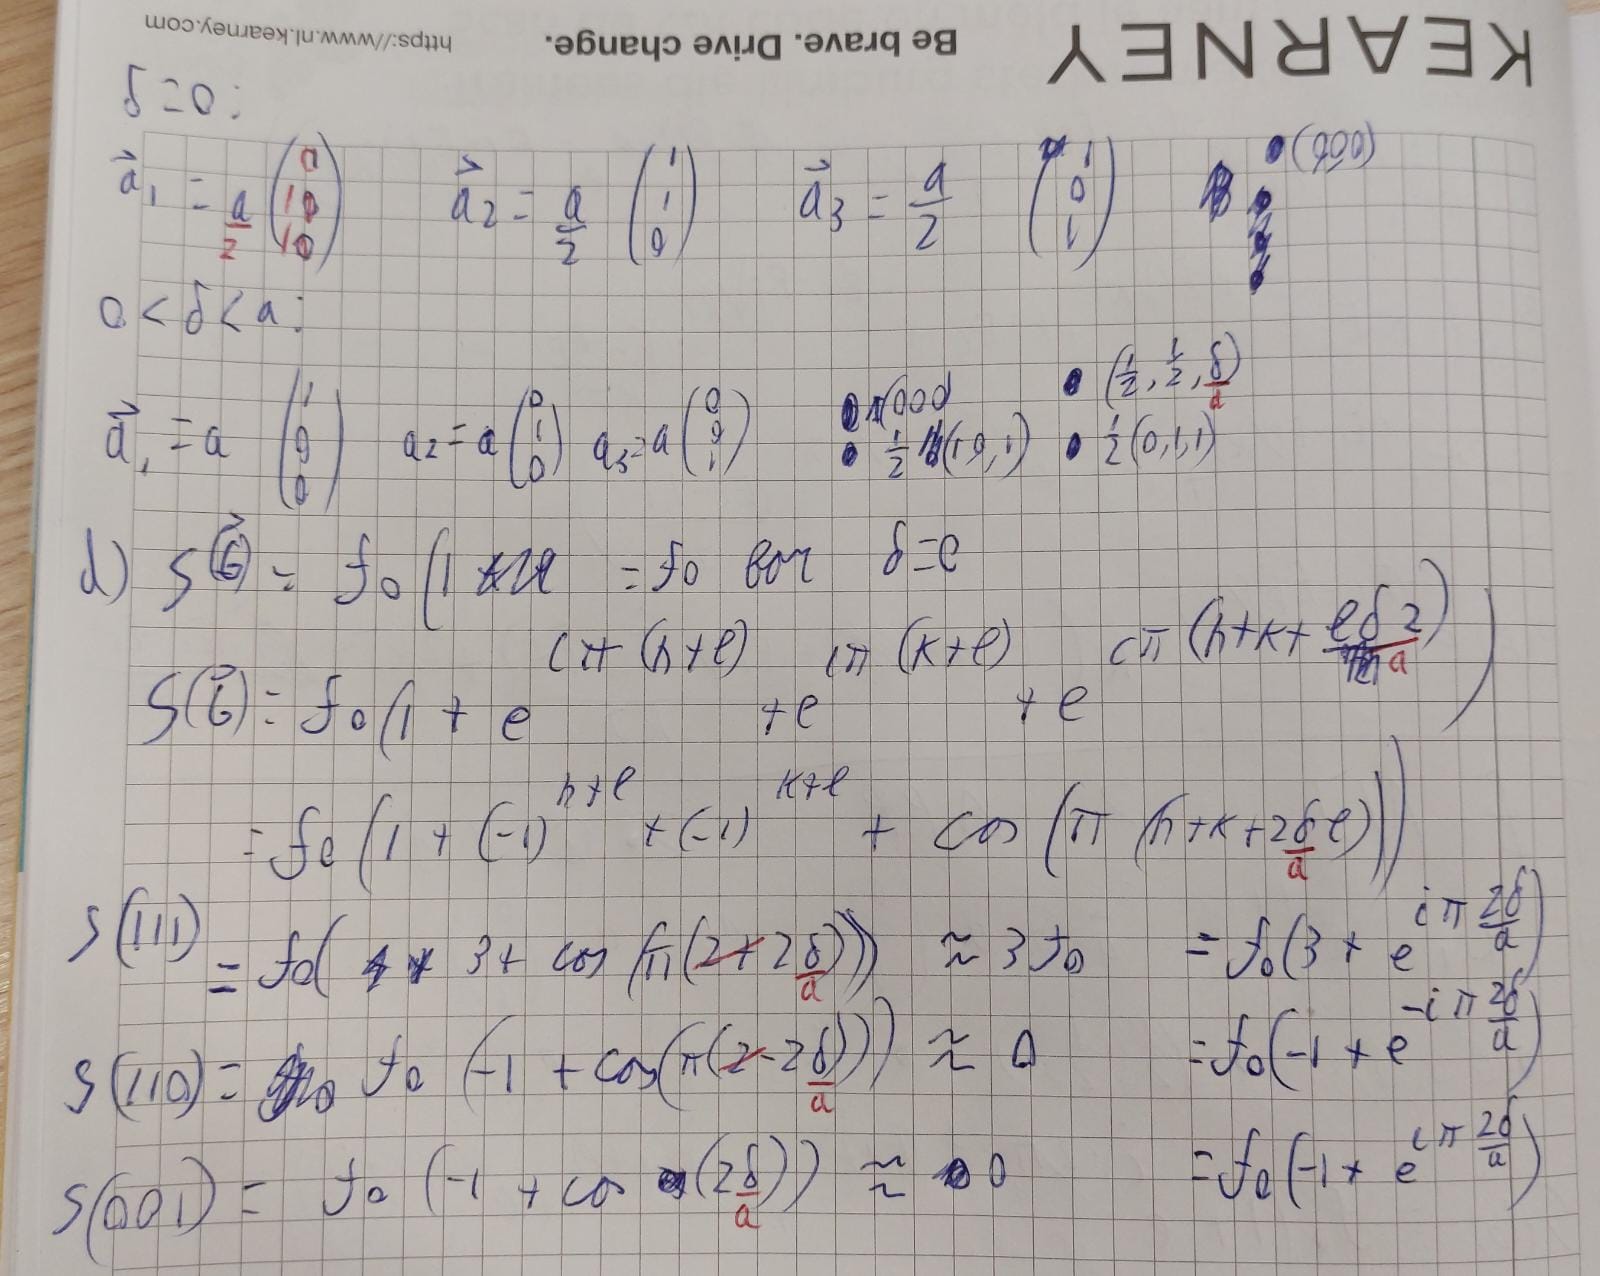 KEARNEY Be brave. Drive change. https://www.nl.kearney.com
δ=0:
a⃗₁ = a/2 (0 1 1) a⃗₂ = a/2 (1 1 0) a⃗₃ = a/2 (1 0 1) • (000)
0<δ<a:
a⃗₁ = a (1 0 0) a₂ = a (0 1 0) a₃ = a (0 0 1) • (000) • (1/2, 1/2, δ/a)
• 1/2 (1 0, 1) • 1/2 (0, 1, 1)
d) S(G⃗) = f₀ (1 = f₀ voor δ=0
S(G⃗) = f₀ (1 + e^{iπ(h+l)} + e^{iπ(k+l)} + e^{iπ(h+k+lδ2/a)})
= f₀ (1 + (-1)^{h+l} + (-1)^{k+l} + cos (π (h+k+2δ/a l)))
S(111) = f₀ ( 3 + cos (π(2+2δ/a))) ≈ 3f₀ = f₀(3 + e^{iπ 2δ/a})
S(110) = f₀ (-1 + cos(π(2-2δ/a))) ≈ 0 = f₀(-1 + e^{-iπ 2δ/a})
S(001) = f₀ (-1 + cos (2δ/a)) ≈ 0 = f₀(-1 + e^{iπ 2δ/a})